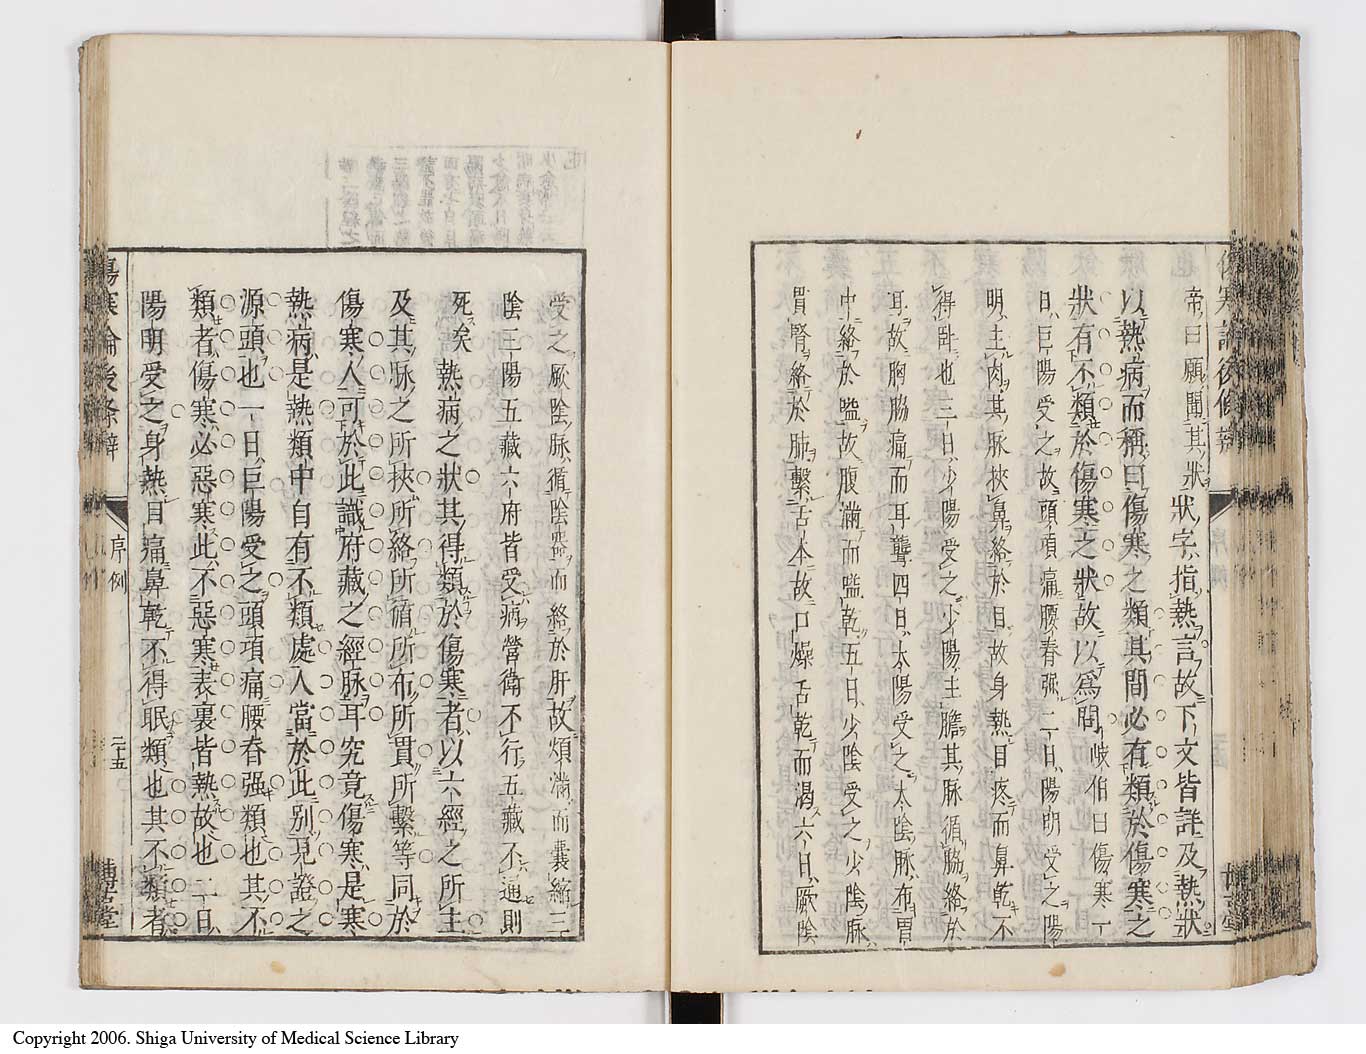 帝曰願聞其狀 狀字指熱言故下文皆詳及熱狀
以熱病而稱曰傷寒之類其間必有類於傷寒之
狀有不類於傷寒之狀故以爲問 岐伯曰傷寒一
日巨陽受之故頭項痛腰脊強二日陽明受之陽
明主肉其脉挾鼻絡於目故身熱目疼而鼻乾不
得臥也三日少陽受之少陽主膽其脉循脇絡於
耳故胸脇痛而耳聾四日太陰受之太陰脉布胃
中絡於嗌故腹滿而嗌乾五日少陰受之少陰脉
腎絡於肺繫舌本故口燥舌乾而渴六日厥陰
受之厥陰脉循陰器而絡於肝故煩滿而囊縮三
陰三陽五藏六府皆受病營衛不行五藏不通則
死矣 熱病之狀其得類於傷寒者以六經之所主
及其脉之所挾所絡所循所布所貫所繫等同於
傷寒人可於此識府藏之經脉耳究竟傷寒是寒
熱病是熱類中自有不類處人當於此別見證之
源頭也一日巨陽受之頭項痛腰脊强類也其不
類者傷寒必惡寒此不惡寒表裏皆熱故也二日
陽明受之身熱目痛鼻乾不得眠類也其不類者
傷寒論後条辨
序例
二十五
博古堂